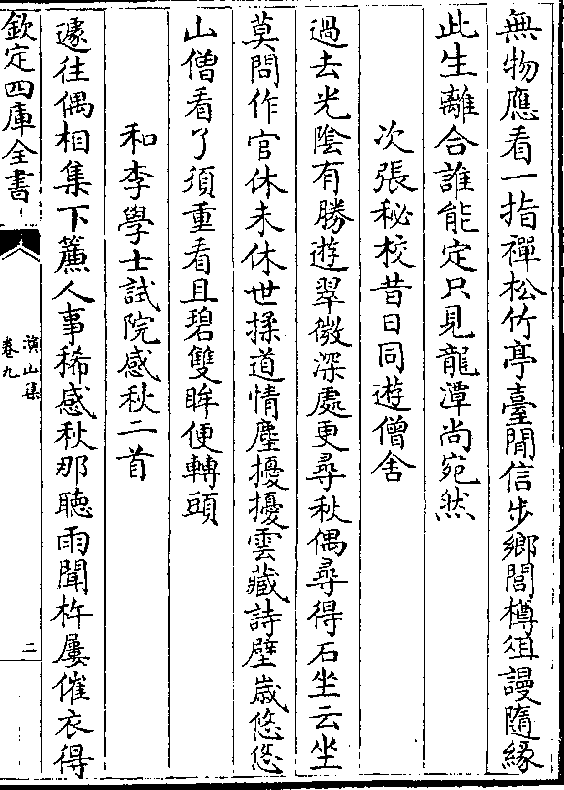 無物應看一指禪松竹亭臺閒信步鄉閭樽俎謾隨緣
此生離合誰能定只見龍潭尚宛然
次張秘校昔日同遊僧舍
過去光隂有勝遊翠微深處更尋秋偶尋得石坐云坐
莫問作官休未休世揉道情塵擾擾雲藏詩壁嵗悠悠
山僧看了須重看且碧雙眸便轉頭
和李學士試院感秋二首
遽往偶相集下簾人事稀感秋那聽雨聞杵屢催衣得
欽定四庫全書
演山集
卷九
二